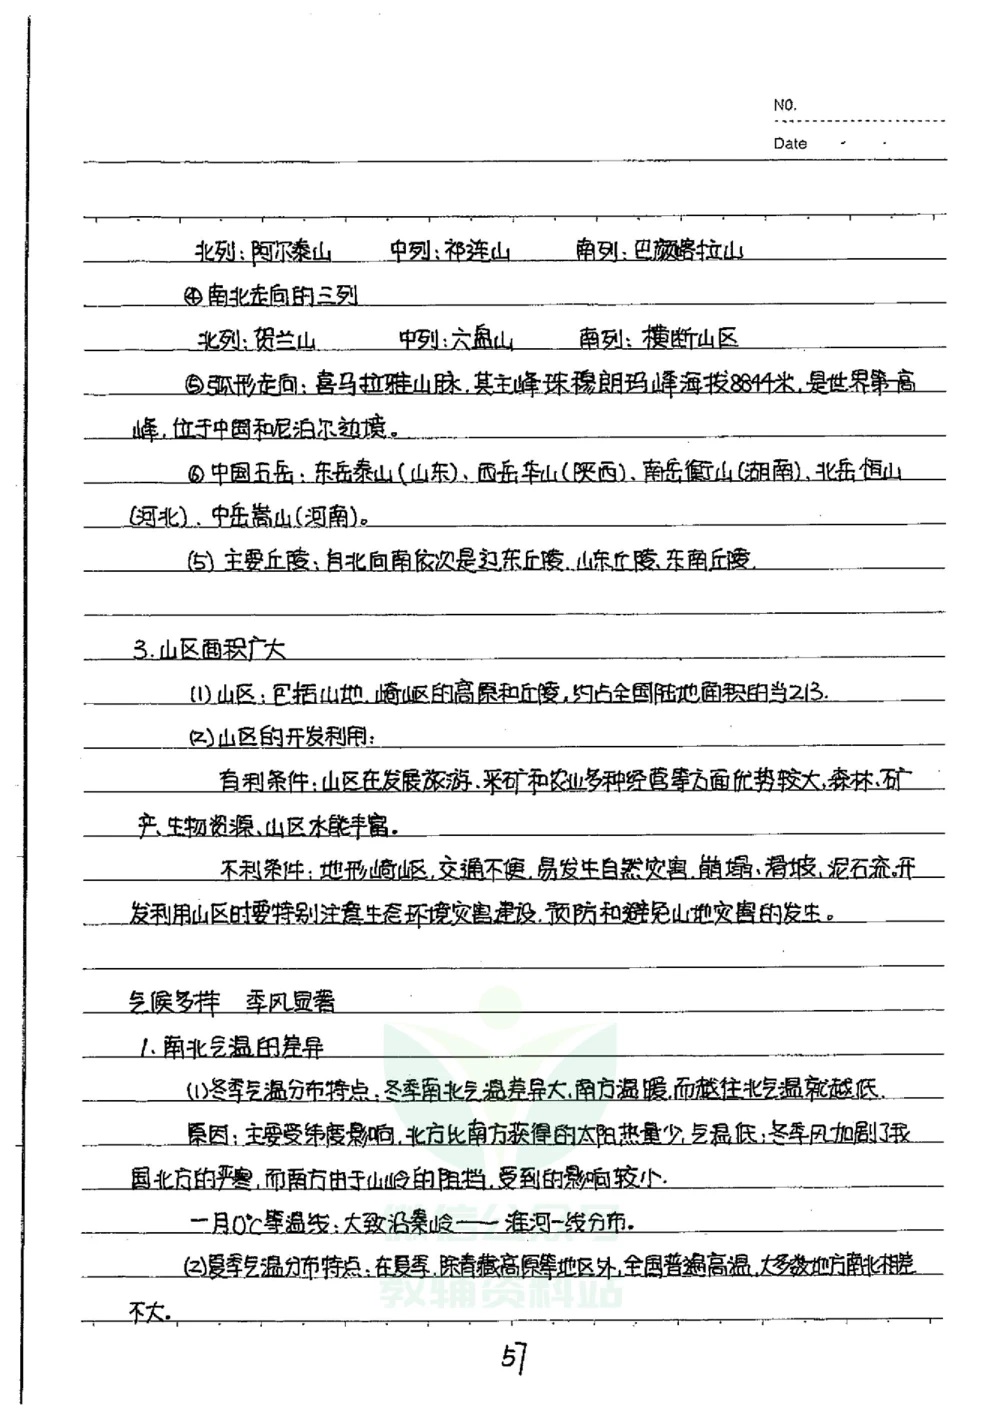 NO.
Date
北列:阿尔泰山 中列:祁连山 南列:巴颜喀拉山
④南北走向的三列
北列:贺兰山 中列:六盘山 南列:横断山区
⑤弧形走向:喜马拉雅山脉,其主峰珠穆朗玛峰海拔8844米,是世界第一高
峰,位于中国和尼泊尔边境。
⑥中国五岳:东岳泰山(山东)、西岳华山(陕西)、南岳衡山(湖南)、北岳恒山
(河北)、中岳嵩山(河南)。
(5)主要丘陵:自北向南依次是辽东丘陵、山东丘陵、东南丘陵.
3.山区面积广大
(1)山区:包括山地、崎岖的高原和丘陵,约占全国陆地面积的当2/3.
(2)山区的开发利用:
有利条件:山区在发展旅游、采矿和农业多种经营等方面优势较大,森林、矿
产、生物资源、山区水能丰富。
不利条件:地形崎岖,交通不便,易发生自然灾害,崩塌、滑坡、泥石流。开
发利用山区时要特别注意生态环境灾害建设,预防和避免山地灾害的发生。
气候多样 季风显著
1.南北气温的差异
(1)冬季气温分布特点:冬季南北气温差异大,南方温暖,而越往北气温就越低.
原因:主要受纬度影响,北方比南方获得的太阳热量少,气温低;冬季风加剧了我
国北方的严寒,而南方由于山岭的阻挡,受到的影响较小.
一月0℃等温线:大致沿秦岭——淮河一线分布。
(2)夏季气温分布特点:在夏季,除青藏高原等地区外,全国普遍高温,大多数地方南北相差
不大。
微信公众号
教辅资料站
57